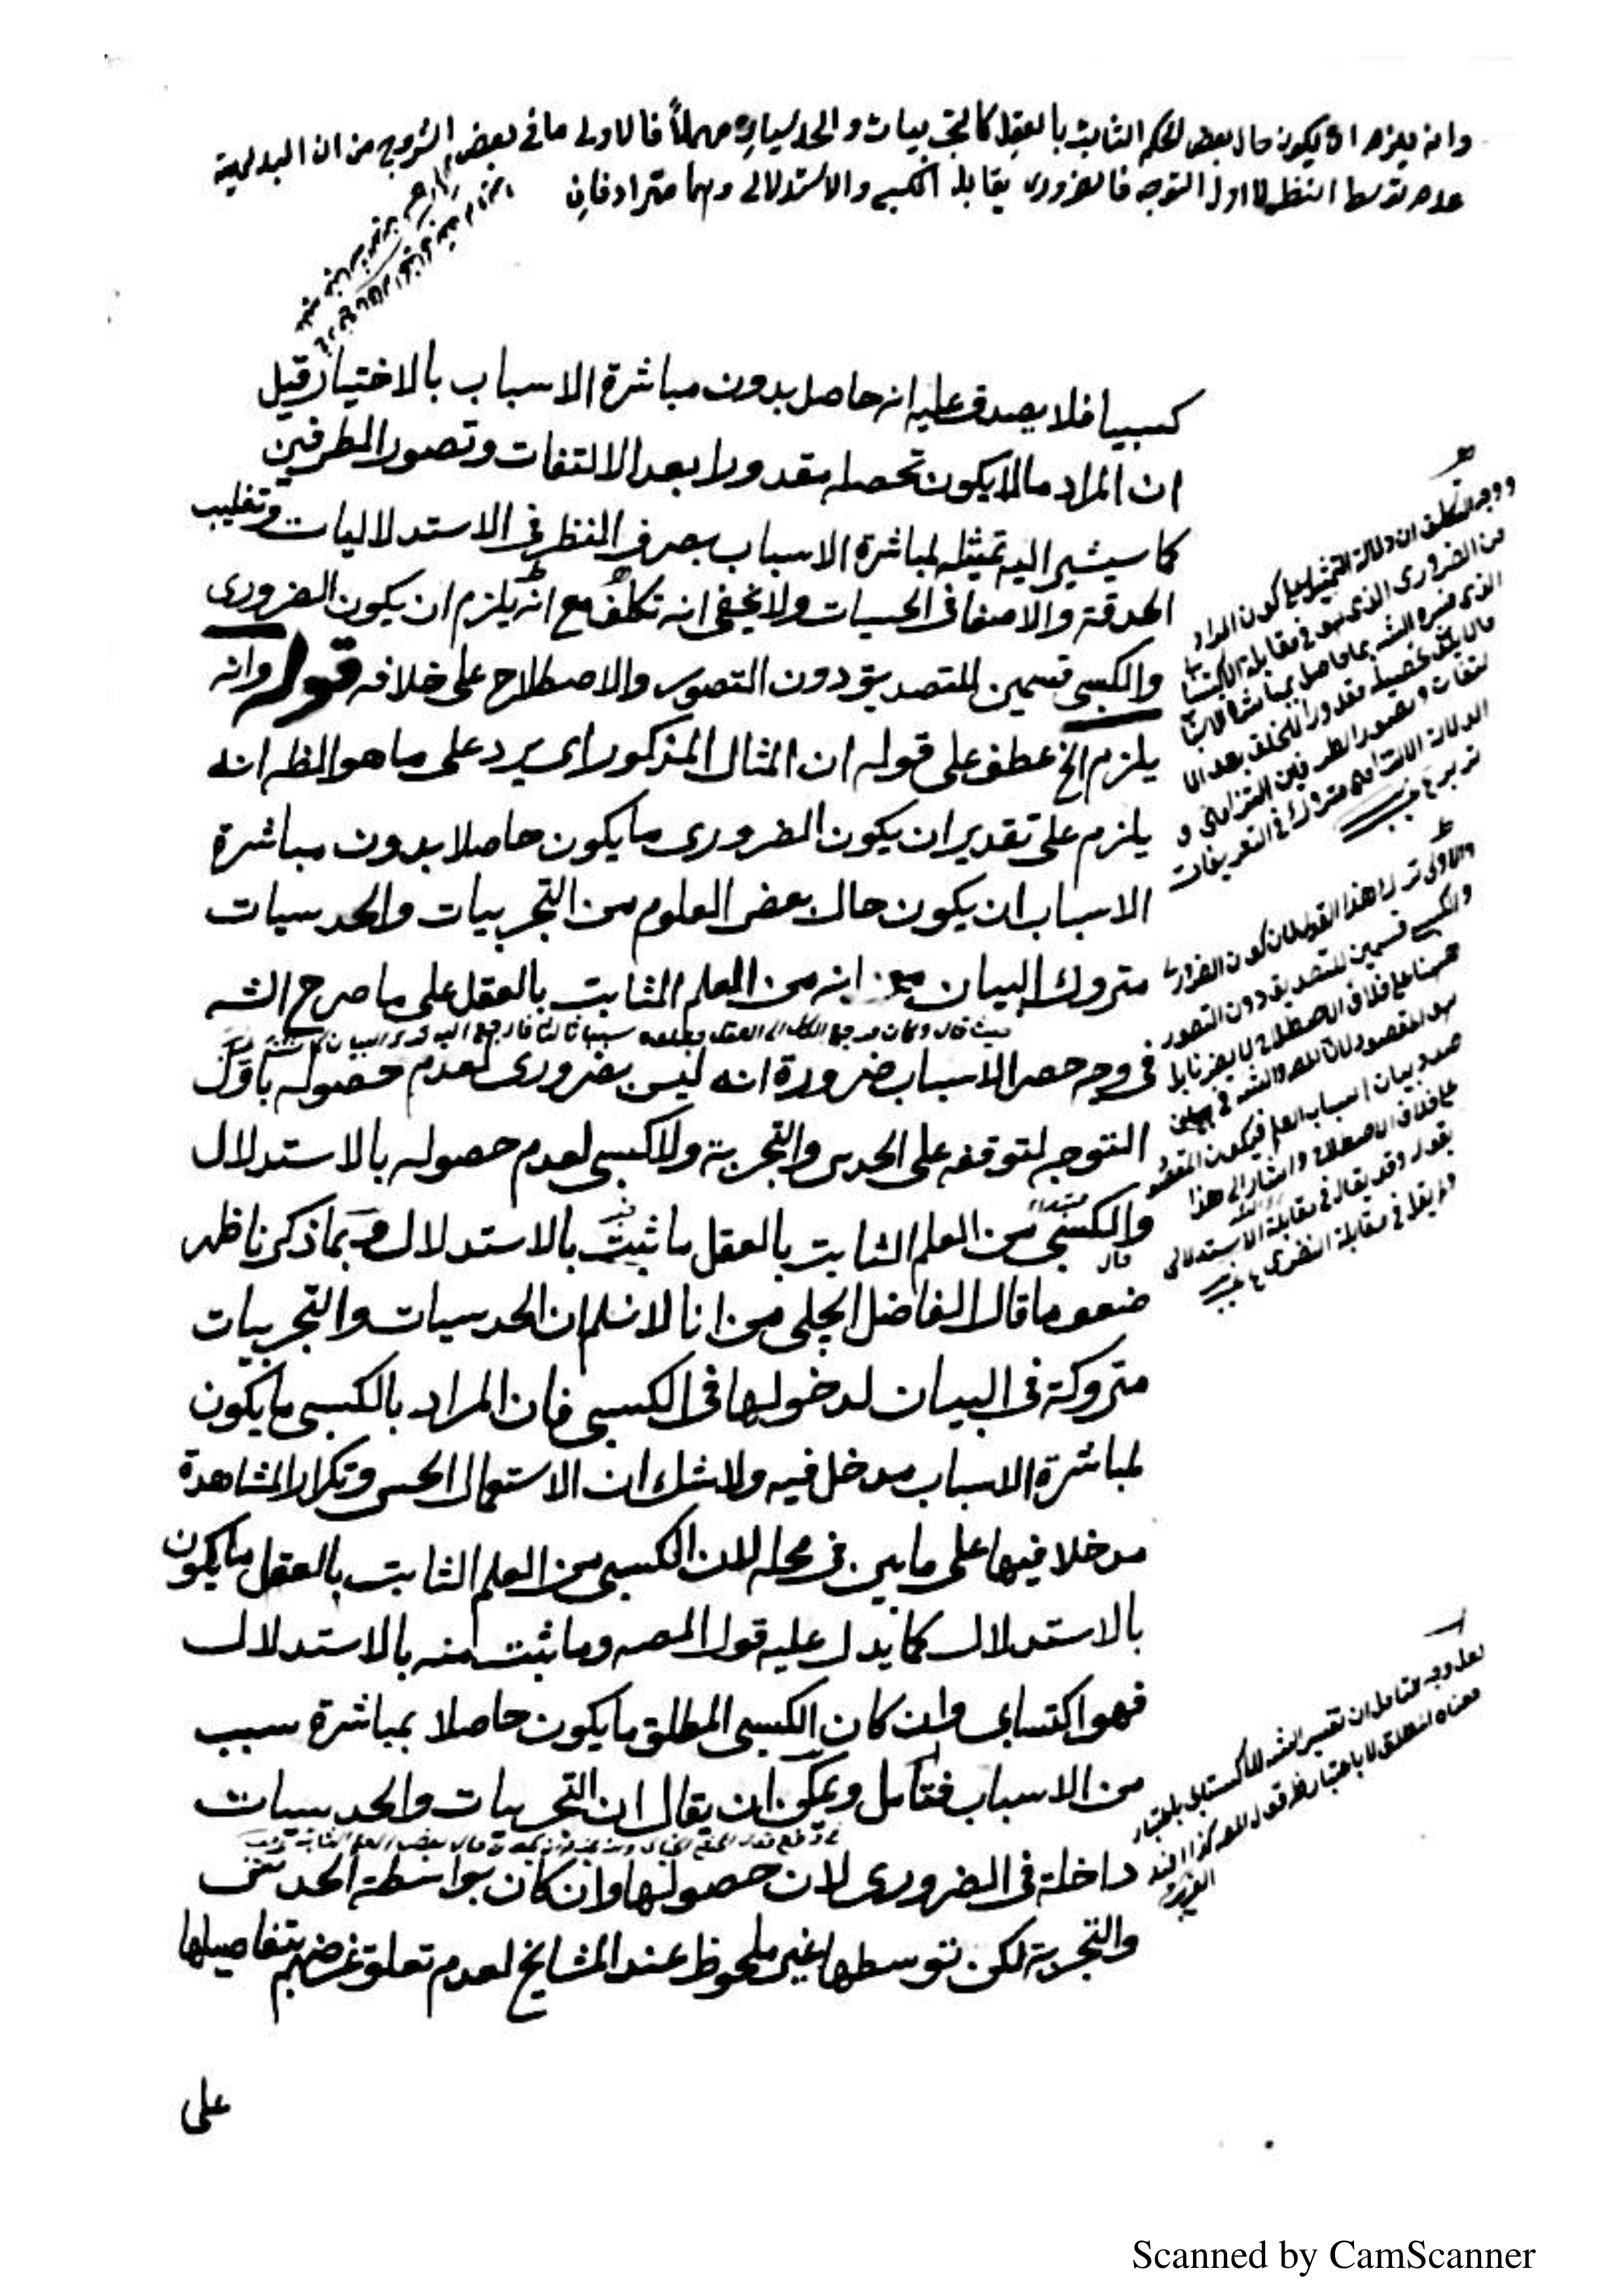 وانه يلزم ان يكون حال بعض العلم الثابت بالعقل كالتجربيات والحدسيات مهملاً فالاولى ما في بعض الشروح من ان البديهية
عدم توسط النظر لا اول التوجه فالضرورى يقابله الكسبى والاستدلالى وهما مترادفان
كسبيا فلا يصدق عليه انه حاصل بدون مباشرة الاسباب بالاختيار قيل
ان المراد ما لا يكون تحصله مقدورا بعد الالتفات وتصور الطرفين
كما سيشير اليه تمثيله لمباشرة الاسباب بصرف النظر فى الاستدلاليات وتقليب
الحدقة والاصغا فى الحسيات ولا يخفى انه تكلف مع انه يلزم ان يكون الضرورى
والكسبى قسمين للتصديق دون التصور والاصطلاح على خلافه قوله وانه
يلزم الخ عطف على قوله ان المثال المذكور اى يرد على ما هو الظ انه
يلزم على تقدير ان يكون الضرورى ما يكون حاصلا بدون مباشرة
الاسباب ان يكون حال بعض العلوم من التجربيات والحدسيات
متروك البيان مع انه من العلم الثابت بالعقل على ما صرح الشه
حيث قال وكان مرجع الكل الى العقل
فى وجه حصر الاسباب ضرورة انه ليس بضرورى لعدم حصوله باول
التوجه لتوقفه على الحدس والتجربة ولا كسبى لعدم حصوله بالاستدلال
والكسبى من العلم الثابت بالعقل ما ثبت بالاستدلال وبما ذكرنا ظهر
ضعف ما قال الفاضل الچلبى من انا لا نسلم ان الحدسيات والتجربيات
متروكة فى البيان لدخولها فى الكسبى فان المراد بالكسبى ما يكون
لمباشرة الاسباب مدخل فيه ولا شك ان الاستعمال الحس وتكرار المشاهدة
مدخلا فيها على ما بين فى محله لان الكسبى من العلم الثابت بالعقل ما يكون
بالاستدلال كما يدل عليه قول المصه وما ثبت منه بالاستدلال
فهو اكتسابى وان كان الكسبى المطلق ما يكون حاصلا بمباشرة سبب
من الاسباب فتأمل ويمكن ان يقال ان التجربيات والحدسيات
داخلة فى الضرورى لان حصولها وان كان بواسطة الحدس
والتجربة لكن توسطها غير ملحوظ عند المشايخ لعدم تعلق غرضهم بتفاصيلها
على
ووجه التكلف ان دلالة التمثيل على كون المراد
من الضرورى الذى هو فى مقابلة الاكتسابى
الذى فسره الشه بما حاصل بمباشرة الاسباب
ما لا يكون تحصيله مقدورا للخلق بعد الا
لتفات وتصور الطرفين التزامى و
الدلالة الالتزامى متروك فى التعريفات
والاولى ترك هذا القول لان كون الضرورى
والكسبى قسمين للتصديق دون التصور
ههنا على خلاف الاصطلاح لا يضرنا بل
هو المقصود لان المص والشه فى
صدد بيان اسباب العلم فيكون المقصود
على خلاف الاصطلاح واشار الى هذا
بقوله وقد يقال فى مقابلة الاستدلالى
ولم يقل فى مقابلة النظرى
لعل وجه التأمل ان تفسير الشه للاكتسابى باعتبار
معناه المطلق لا باعتبار قول المص
Scanned by CamScanner